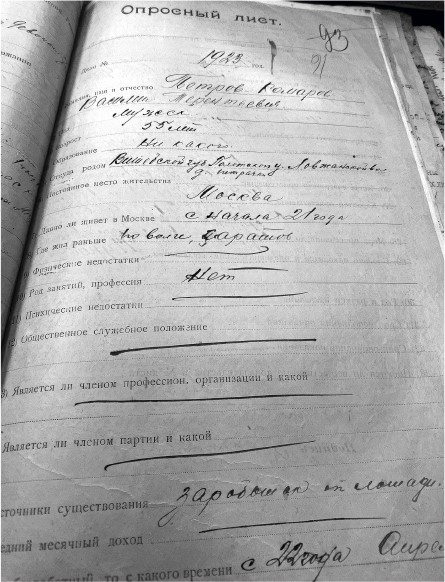 Опросный лист.
93
91
Дело № 1923 год
имя и отчество Петров Комаров
Василий Терентьевич
мужск
Возраст 55 лет
Образование Ни какого
Откуда родом Витебской губ
Постоянное место жительства Москва
Давно ли живет в Москве с начала 21 года
Где жил раньше По волги, Саратов
Физические недостатки
Род занятий, профессия Нет
Психические недостатки
Общественное служебное положение
Является ли членом профессион. организации и какой
Является ли членом партии и какой
источники существования заработок от лошади.
средний месячный доход
то с какого времени с 22 года Апре